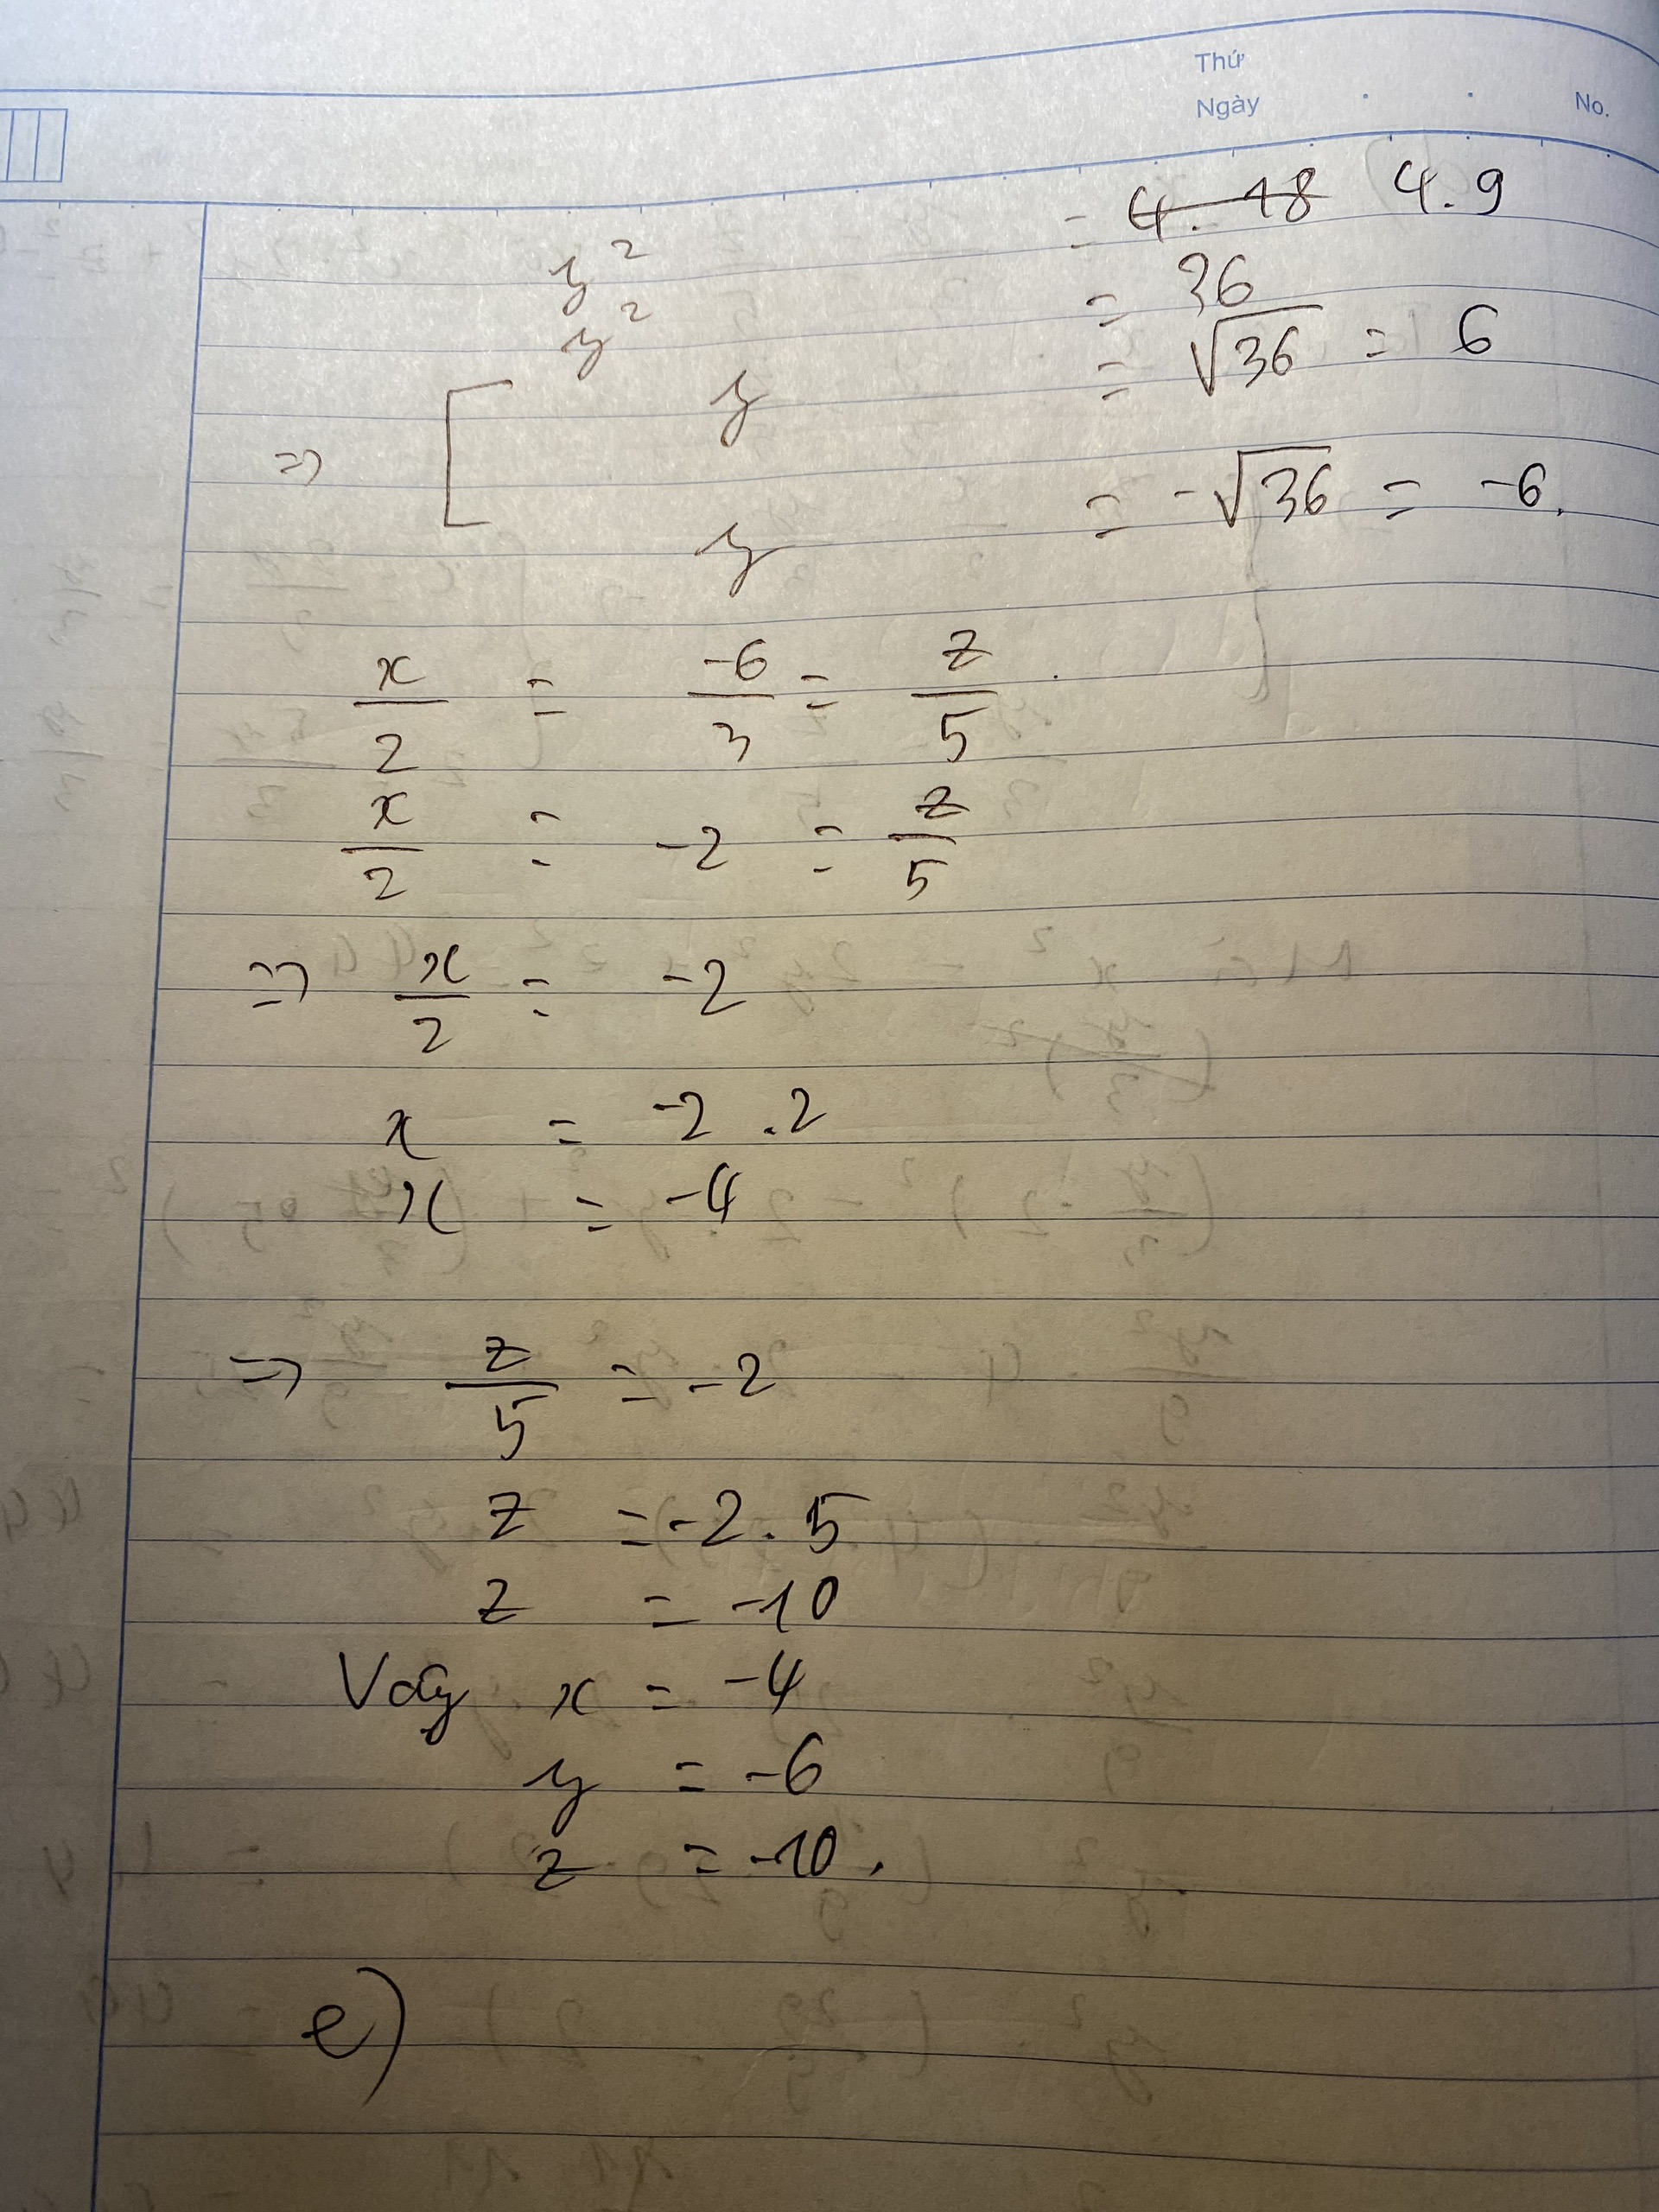 Thứ
Ngày No.
y² = 4.18 4.9
y² = 36
⇒ [ y = √36 = 6
y = -√36 = -6.
x/2 = -6/3 = z/5
x/2 = -2 = z/5
⇒ x/2 = -2
x = -2 . 2
x = -4
⇒ z/5 = -2
z = -2 . 5
z = -10
Vậy x = -4
y = -6
z = -10.
e)